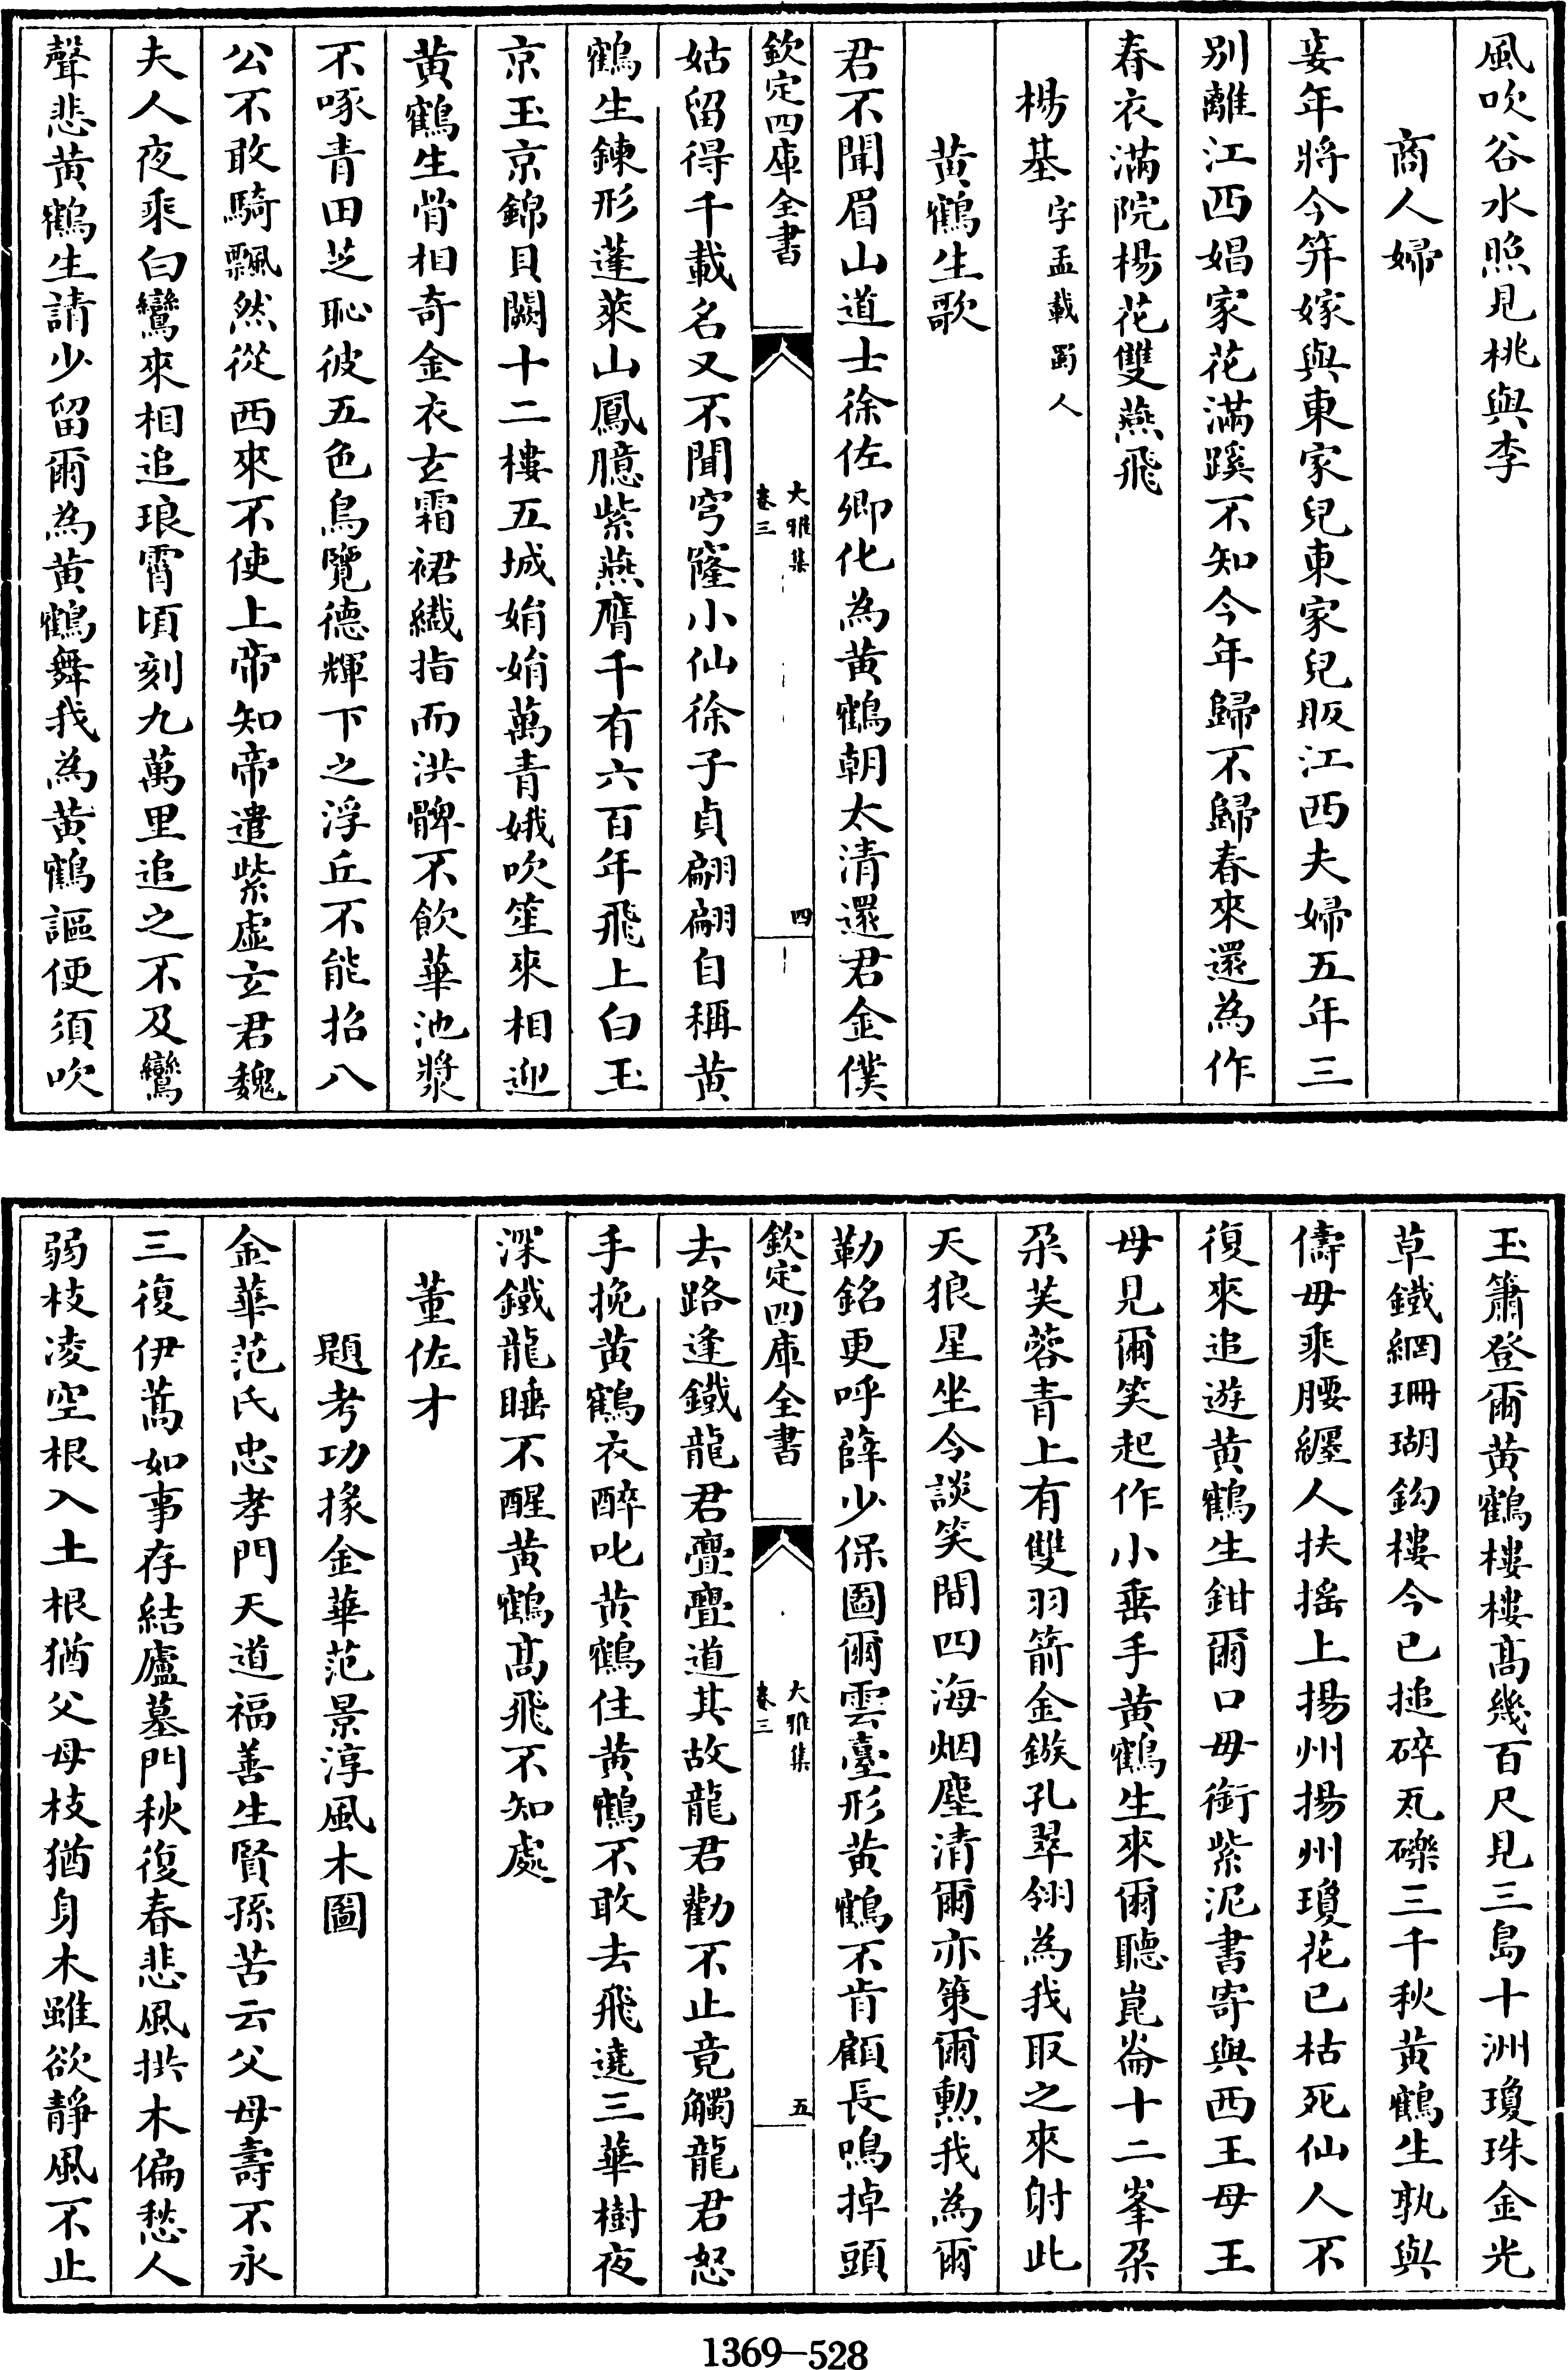 風吹谷水照見桃與李
商人婦
妾年將今笄嫁與東家兒東家兒販江西夫婦五年三
别離江西娼家花滿蹊不知今年歸不歸春來還為作
春衣滿院楊花雙燕飛
楊基字孟載蜀人
黄鶴生歌
君不聞眉山道士徐佐卿化為黄鶴朝太清還君金僕
欽定四庫全書
大雅集
卷三
四
姑留得千載名又不聞穹窿小仙徐子貞翩翩自稱黄
鶴生鍊形蓬萊山鳳臆紫燕膺千有六百年飛上白玉
京玉京錦貝闕十二樓五城娟娟萬青娥吹笙來相迎
黄鶴生骨相奇金衣玄霜裙纎指而洪髀不飲華池漿
不啄青田芝恥彼五色鳥覽德輝下之浮丘不能招八
公不敢騎飄然從西來不使上帝知帝遣紫虛玄君魏
夫人夜乘白鸞來相追琅霄頃刻九萬里追之不及鸞
聲悲黄鶴生請少留爾為黄鶴舞我為黄鶴謳便須吹
玉簫登爾黄鶴樓樓髙幾百尺見三島十洲瓊珠金光
草鐵網珊瑚鈎樓今已搥碎瓦礫三千秋黄鶴生孰與
儔毋乘腰纒人扶摇上揚州揚州瓊花已枯死仙人不
復來追遊黄鶴生鉗爾口毋銜紫泥書寄與西王母王
母見爾笑起作小垂手黄鶴生來爾聽崑崙十二峯朶
朶芙蓉青上有雙羽箭金鏃孔翠翎為我取之來射此
天狼星坐令談笑間四海烟塵清爾亦策爾勲我為爾
勒銘更呼薛少保圖爾雲臺形黄鶴不肯顧長鳴掉頭
欽定四庫全書
大雅集
卷三
五
去路逢鐵龍君亹亹道其故龍君勸不止竟觸龍君怒
手挽黄鶴衣醉叱黄鶴住黄鶴不敢去飛遶三華樹夜
深鐵龍睡不醒黄鶴髙飛不知處
董佐才
題考功掾金華范景淳風木圖
金華范氏忠孝門天道福善生賢孫苦云父母壽不永
三復伊蒿如事存結廬墓門秋復春悲風拱木偏愁人
弱枝凌空根入土根猶父母枝猶身木雖欲靜風不止
1369—528